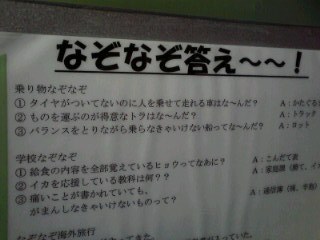 なぞなぞ答え～～！
乗り物なぞなぞ
① タイヤがついてないのに人を乗せて走れる車はな～んだ？ A：かたぐるま
② ものを運ぶのが得意なトラはな～んだ？ A：トラック
③ バランスをとりながら乗らなきゃいけない船ってな～んだ？ A：ヨット
学校なぞなぞ
① 給食の内容を全部覚えているヒョウってなあに？ A：こんだて表
② イカを応援している教科は何？？ A：家庭科
③ 痛いことが書かれていても、
がまんしなきゃいけないものって？ A：通信簿
なぞなぞ海外旅行